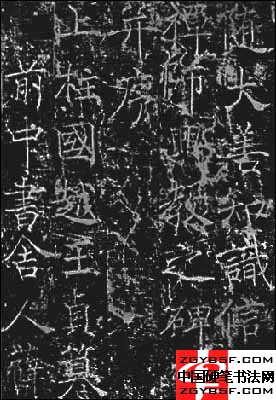 隨大善知識信
禪師興教之碑
并序
上柱國越王貞撰
前中書舍人
ZGYBSF.COM
中国硬笔书法网
ZGYBSF.COM